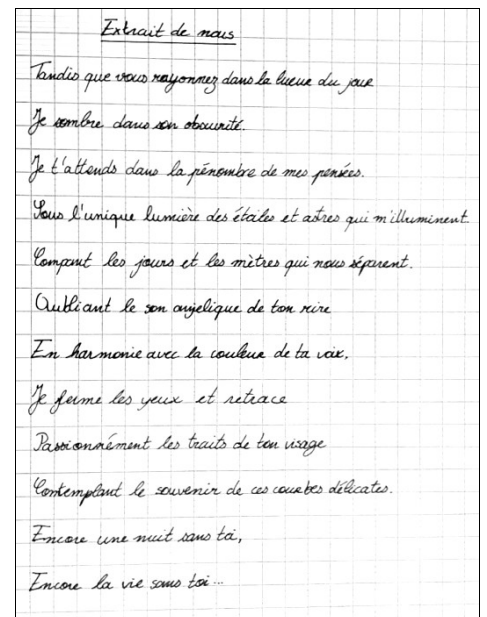 Extrait de nous
Tandis que vous rayonnez dans la lueur du jour
Je sombre dans son obscurité.
Je t'attends dans la pénombre de mes pensées.
Sous l'unique lumière des étoiles et astres qui m'illuminent.
Comptant les jours et les mètres qui nous séparent.
Oubliant le son angelique de ton rire
En harmonie avec la couleur de ta voix,
Je ferme les yeux et retrace
Passionnément les traits de ton visage
Contemplant le souvenir de ces courbes délicates.
Encore une nuit sans toi,
Encore la vie sans toi...